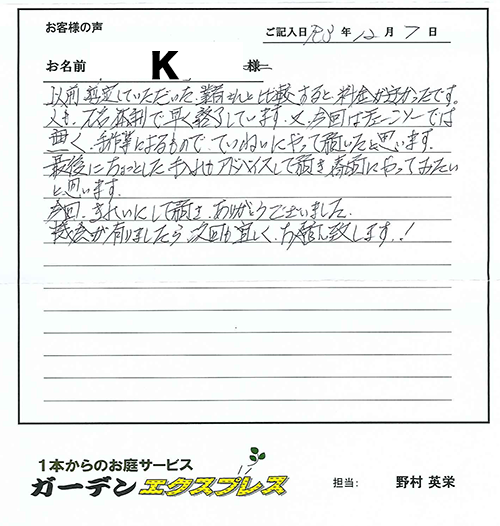 お客様の声
ご記入日 R3 年 12 月 7 日
お名前 K 様
以前剪定していただいた業者さんと比較すると、料金が安かったです。
人も、2名体制で早く終了しています。又、今回はチェーンソーでは
無く、手作業によるもので、ていねいにやって頂いたと思います。
最後にちょっとした手入れもアドバイスして頂き、参考にやってみたい
と思います。
今回、きれいにして頂き、ありがとうございました。
機会が有りましたら、次回も宜しく、お願い致します。!
1本からのお庭サービス
ガーデンエクスプレス
担当: 野村 英栄